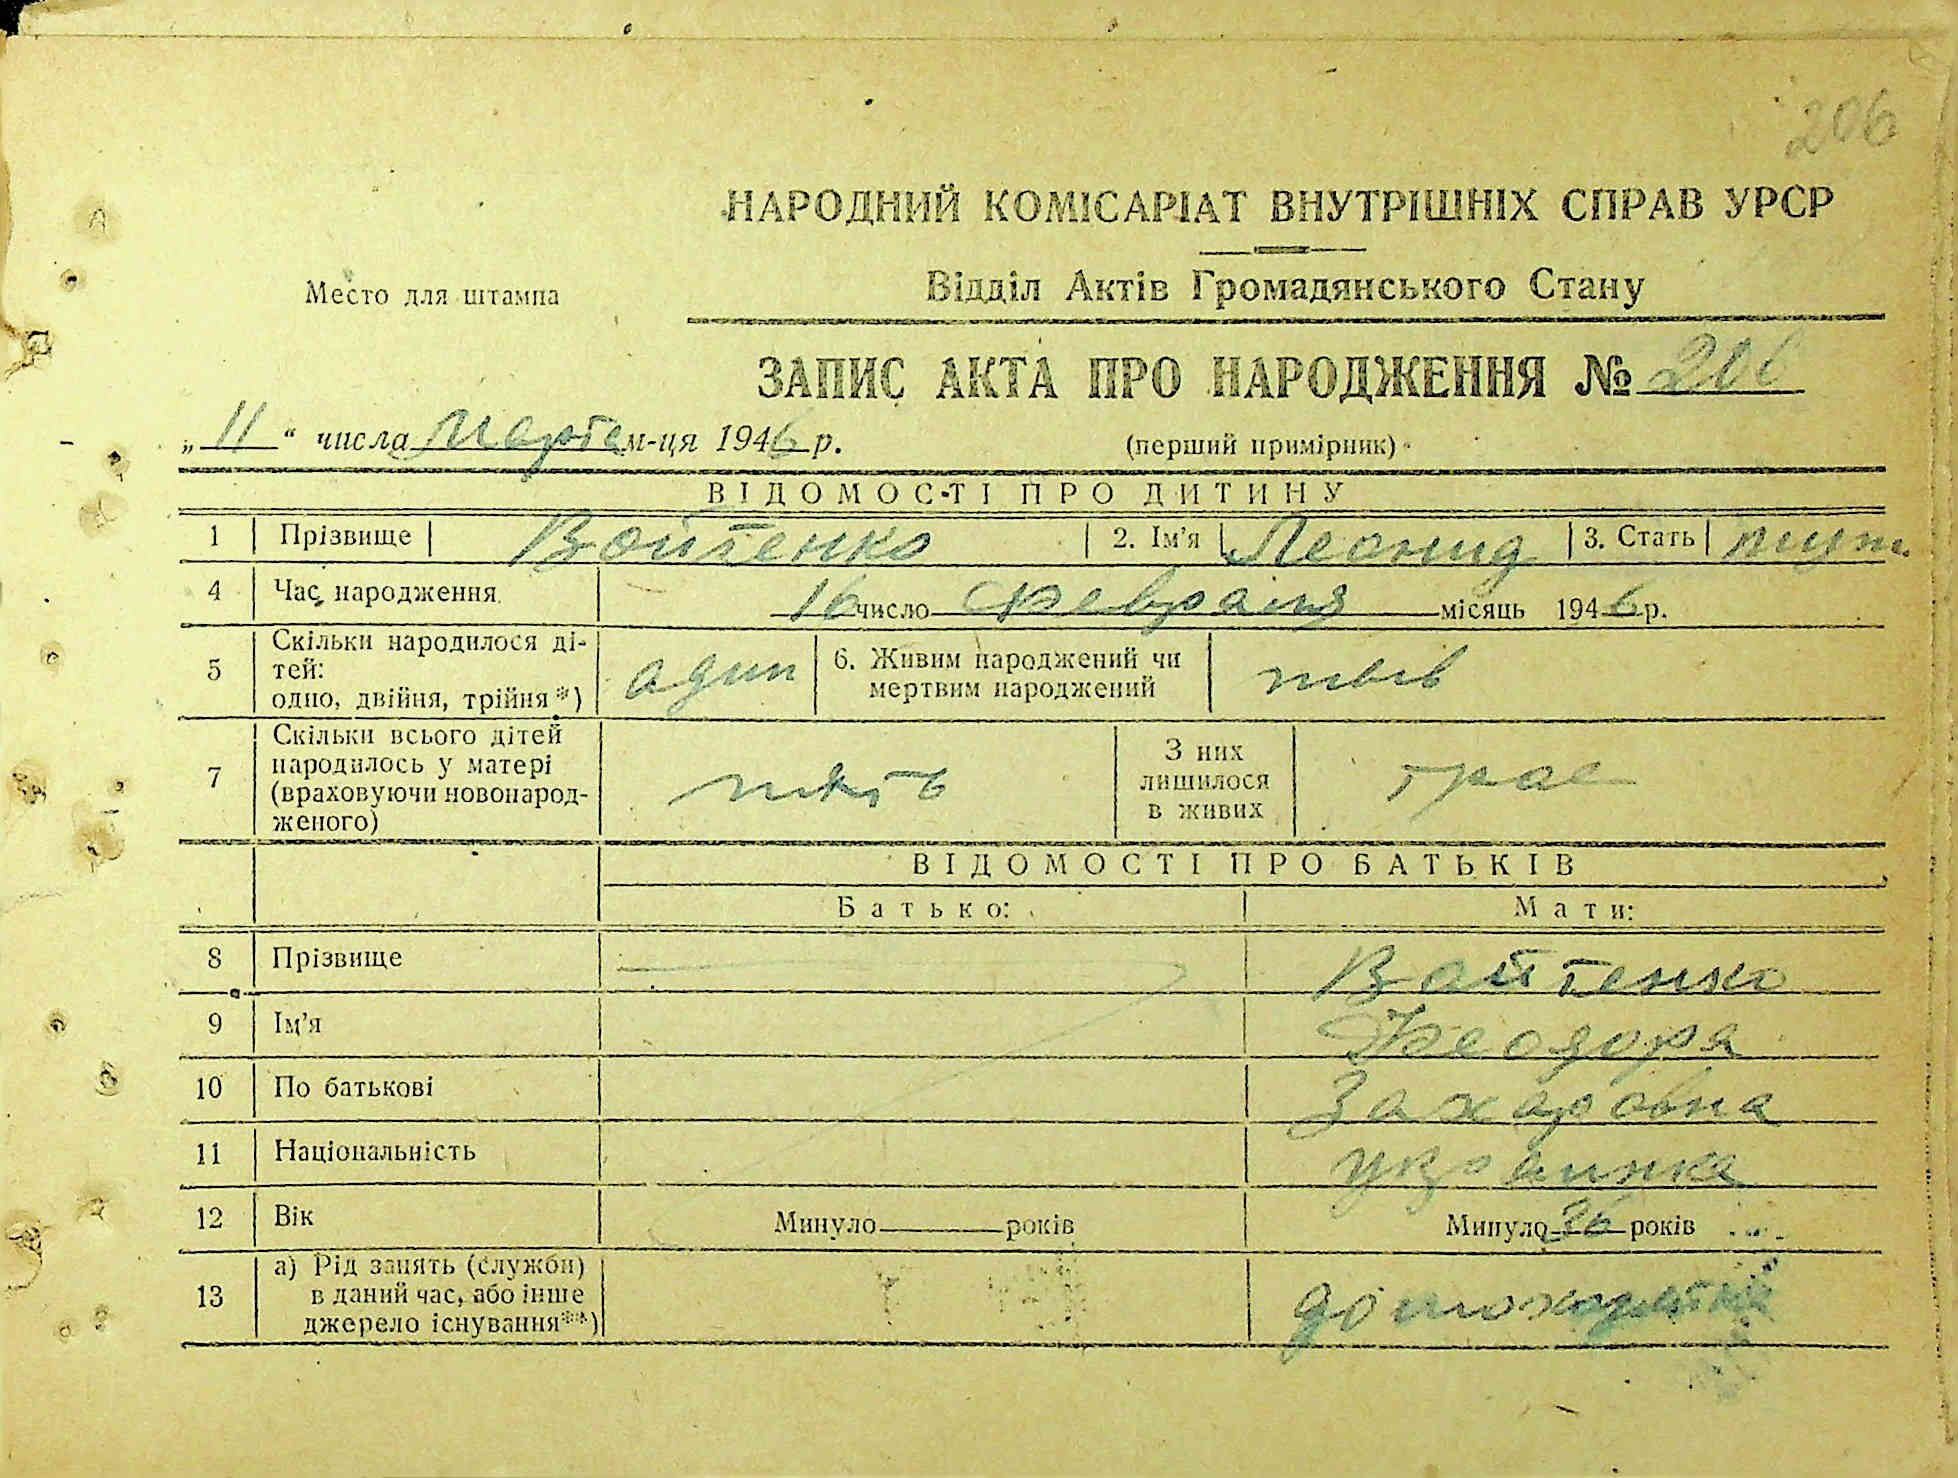 206
НАРОДНИЙ КОМІСАРІАТ ВНУТРІШНІХ СПРАВ УРСР
Место для штампа
Відділ Актів Громадянського Стану
ЗАПИС АКТА ПРО НАРОДЖЕННЯ № 206
„11“ числа марта м-ця 1946 р.
(перший примірник)
ВІДОМОСТІ ПРО ДИТИНУ
1 Прізвище Войтенко 2. Ім’я Леонид 3. Стать муж.
4 Час народження 16 число февраля місяць 1946 р.
5 Скільки народилося ді-
тей:
одно, двійня, трійня*) один
6. Живим народжений чи
мертвим народжений
7 Скільки всього дітей
народилось у матері
(враховуючи новонарод-
женого)
З них
лишилося
в живих
трое
ВІДОМОСТІ ПРО БАТЬКІВ
Батько: Мати:
8 Прізвище Войтенко
9 Ім’я Феодора
10 По батькові Захаровна
11 Національність украинка
12 Вік Минуло років Минуло 36 років
13 а) Рід занять (служби)
в даний час, або інше
джерело існування**)